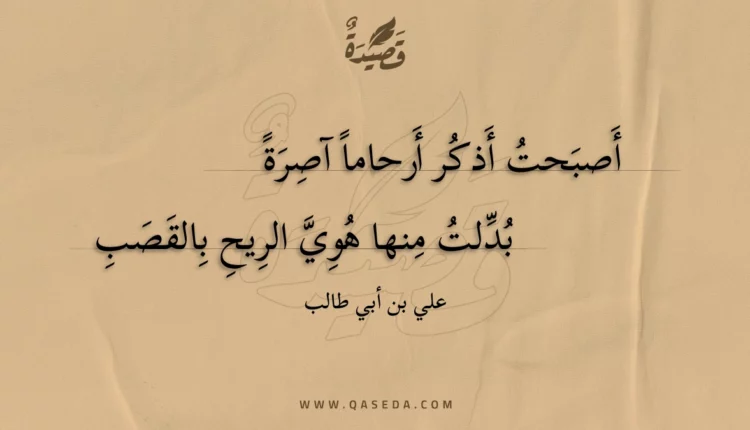 قَصِيدَةٌ
أَصبَحتُ أَذكُر أَرحاماً آصِرَةً
بُدِّلتُ مِنها هُوِيَّ الرِيحِ بِالقَصَبِ
علي بن أبي طالب
WWW.QASEDA.COM